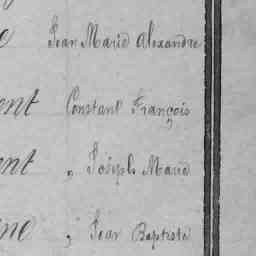 e Jean Marie Alexandre
ent Constant François
ent „ Joseph Marie
ine „ Jean Baptiste